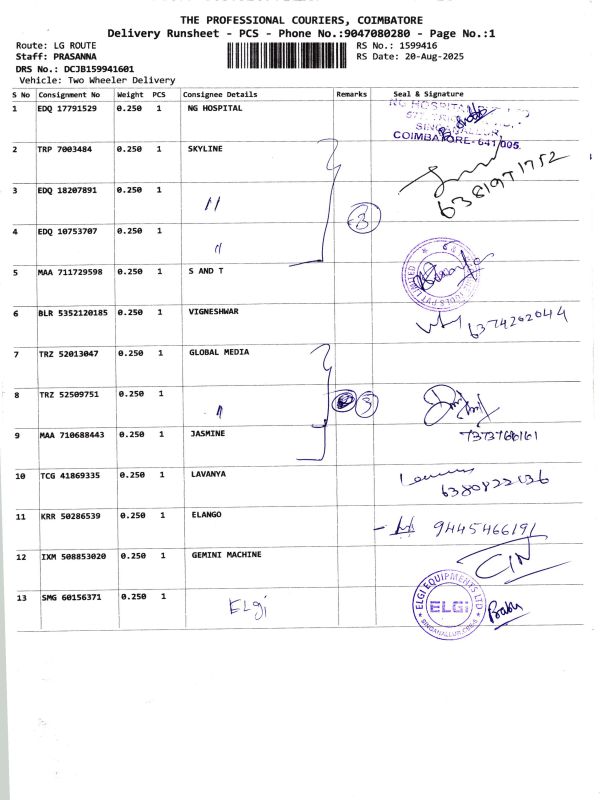 THE PROFESSIONAL COURIERS, COIMBATORE
Delivery Runsheet - PCS - Phone No.:9047080280 - Page No.:1
Route: LG ROUTE RS No.: 1599416
Staff: PRASANNA RS Date: 20-Aug-2025
DRS No.: DCJB159941601
Vehicle: Two Wheeler Delivery
S No Consignment No Weight PCS Consignee Details Remarks Seal & Signature
1 EDQ 17791529 0.250 1 NG HOSPITAL
NG HOSPITAL
SINGANALLUR,
COIMBATORE-641 005.
2 TRP 7003484 0.250 1 SKYLINE
3 EDQ 18207891 0.250 1 〃 6381971752
3
4 EDQ 10753707 0.250 1 〃
5 MAA 711729598 0.250 1 S AND T
LIMITED
6 BLR 5352120185 0.250 1 VIGNESHWAR 6374262044
7 TRZ 52013047 0.250 1 GLOBAL MEDIA
8 TRZ 52509751 0.250 1 〃 3
9 MAA 710688443 0.250 1 JASMINE 7373766161
10 TCG 41869335 0.250 1 LAVANYA
6380822136
11 KRR 50286539 0.250 1 ELANGO 9445466191
12 IXM 508853020 0.250 1 GEMINI MACHINE
13 SMG 60156371 0.250 1 ELgi
ELGI EQUIPMENTS LTD
ELGi
SINGANALLUR, CBE-5
Babu